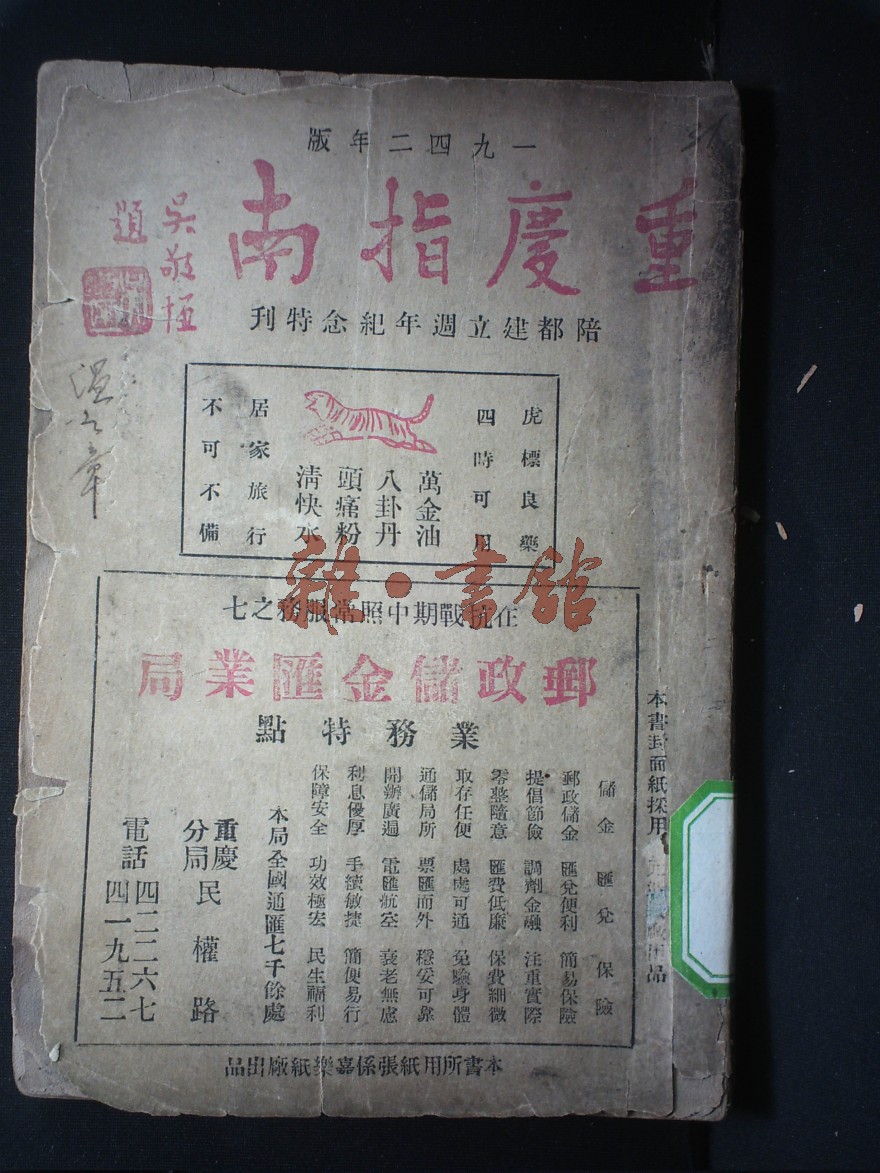 一九四二年版
重慶指南
吳敬恆題
陪都建立週年紀念特刊
虎標良藥
四時可用
萬金油
八卦丹
頭痛粉
清快水
居家旅行
不可不備
雜·書館
在抗戰期中照常服務之七
郵政儲金匯業局
業務特點
儲金匯兌保險
郵政儲金 匯兌便利 簡易保險
提倡節儉 調劑金融 注重實際
零整隨意 匯費低廉 保費細微
取存任便 處處可通 免驗身體
通儲局所 票匯而外 穩妥可靠
開辦廣遍 電匯航空 衰老無慮
利息優厚 手續敏捷 簡便易行
保障安全 功效極宏 民生福利
本局全國通匯七千餘處
重慶分局民權路
電話 四二二六七
四一九五二
本書封面紙採用
本書所用紙張係嘉樂紙廠出品